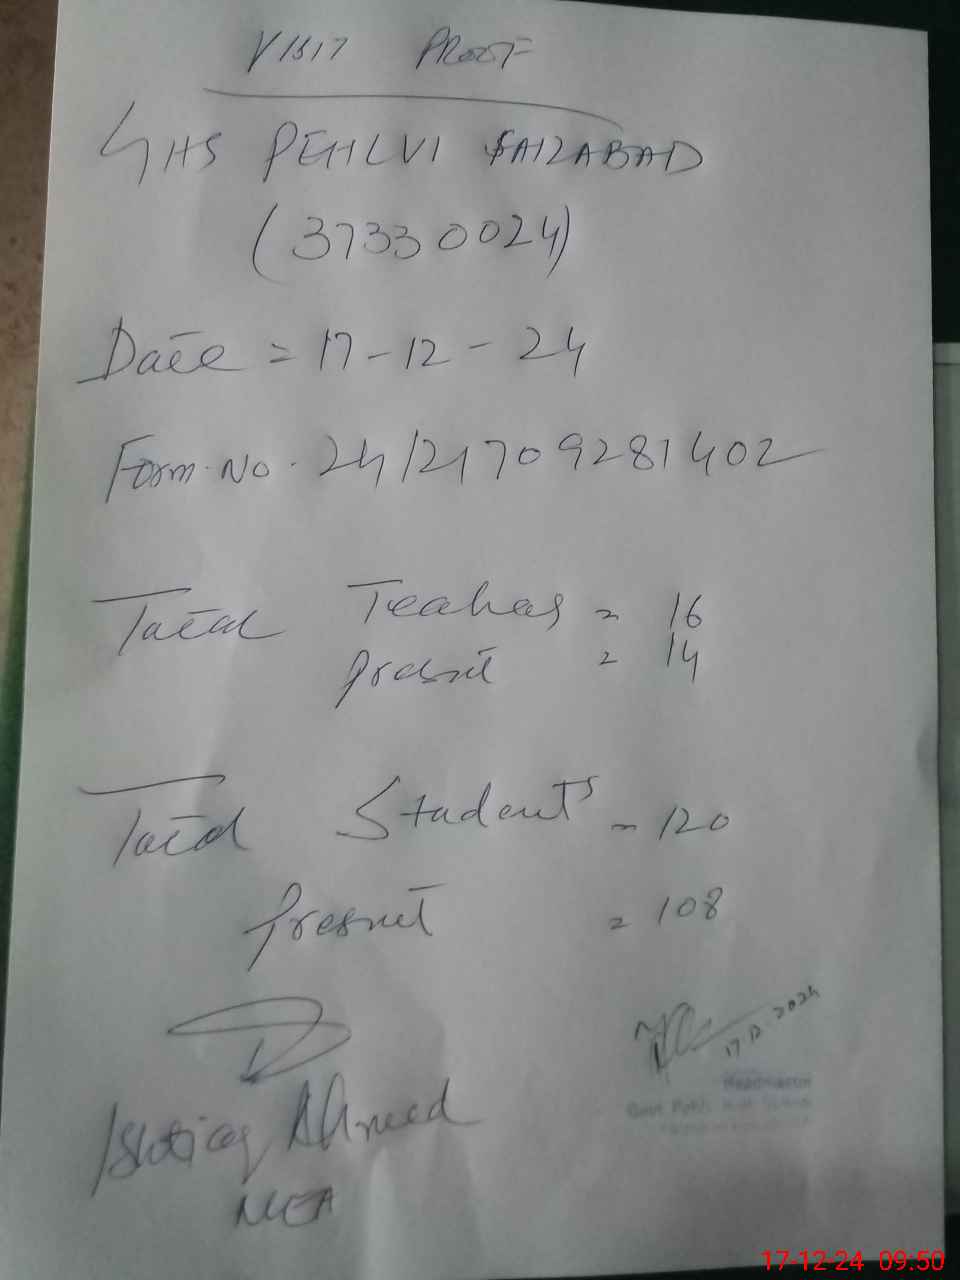 VISIT PROOF
GHS PEHLVI FAIZABAD
(37330024)
Date = 17-12-24
Form No. 24121709281402
Total Teachers = 16
Present = 14
Total Students = 120
Present = 108
17.12.2024
Headmaster
Govt. High School
Ishtiaq Ahmed
MEA
17-12-24 09:50